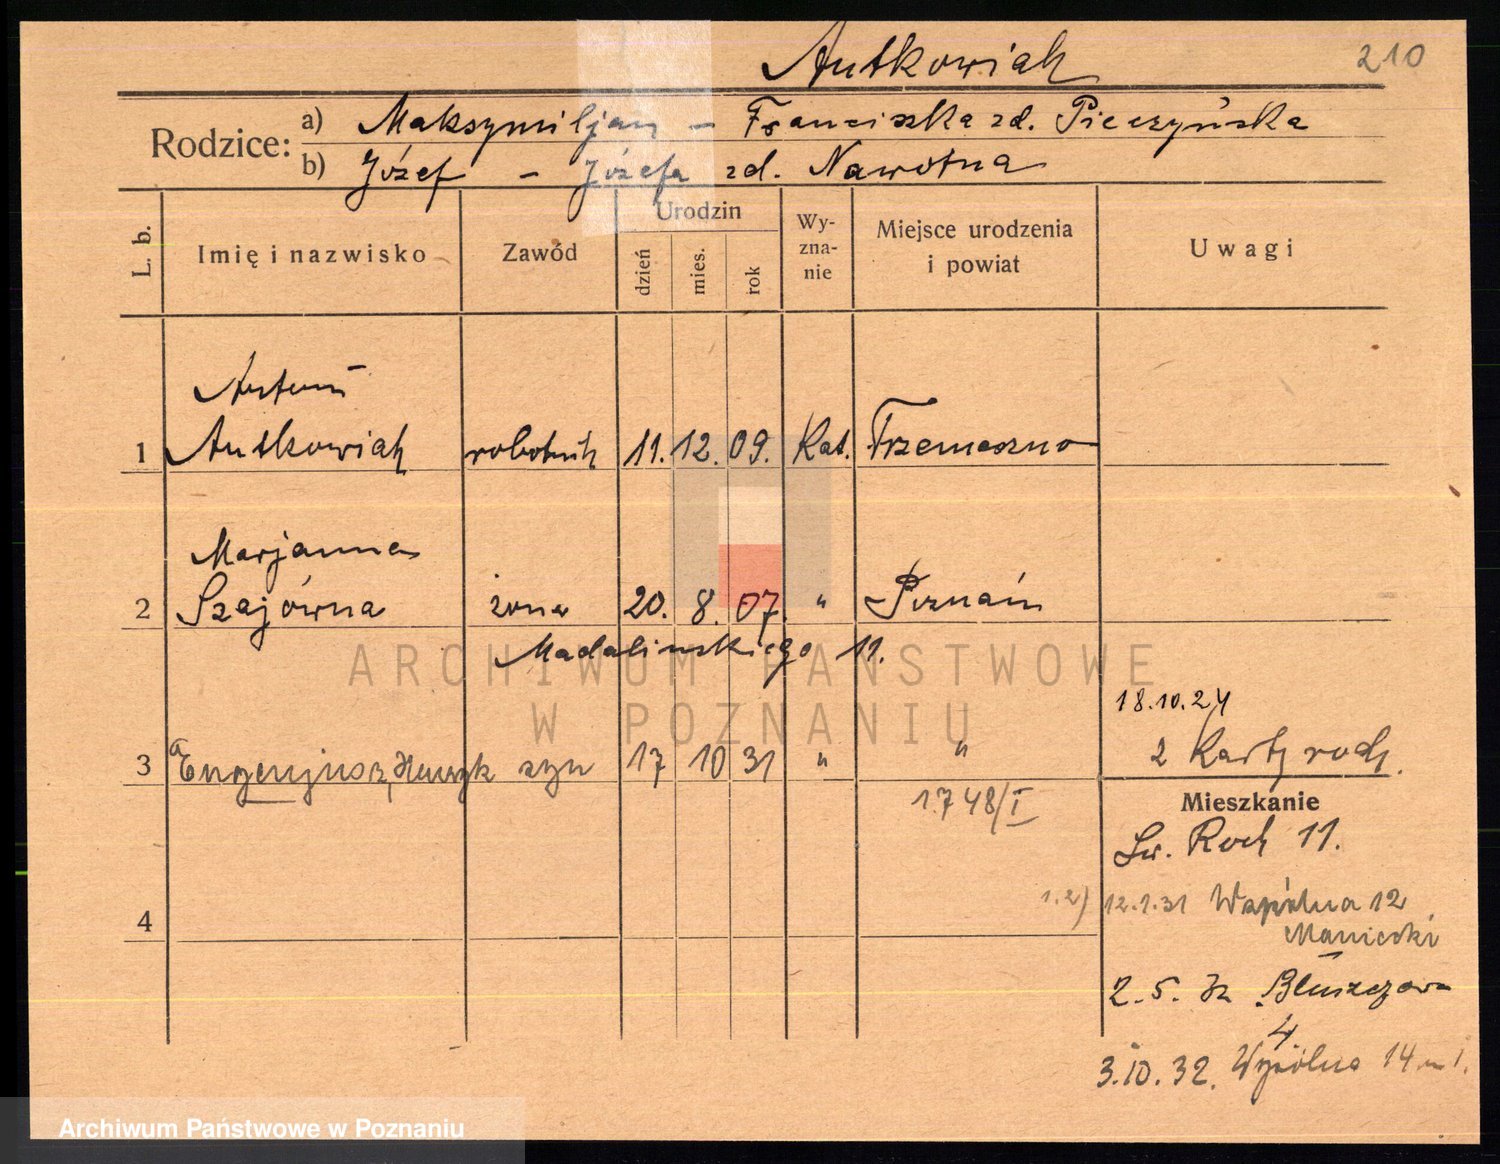 Antkowiak 210
Rodzice: a) Maksymiljan – Franciszka zd. Pieczyńska
b) Józef – Józefa zd. Nawotna
L. b. Imię i nazwisko Zawód Urodzin dzień mies. rok Wy-zna-nie Miejsce urodzenia i powiat Uwagi
Antoni
1 Antkowiak robotnik 11. 12. 09. Kat. Trzemeszno
Marjanna
2 Szajówna żona 20. 8. 07. " Poznań
Madalinskiego 11.
18.10.24
3 Eugenjusz, Henryk syn 17 10 31 " " 2 Karty rodz.
1748/I
Mieszkanie
Św. Roch 11.
1.2) 12.1.31 Wspólna 12
4
Maniecki
2. 5. 32 Bluszczowa
4
3.10.32. Wspólna 14 m 1.
ARCHIWUM PAŃSTWOWE
W POZNANIU
Archiwum Państwowe w Poznaniu